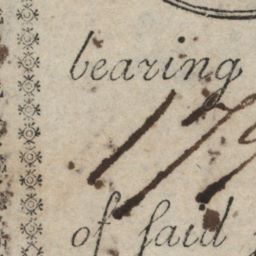 bearing
179
of ſaid